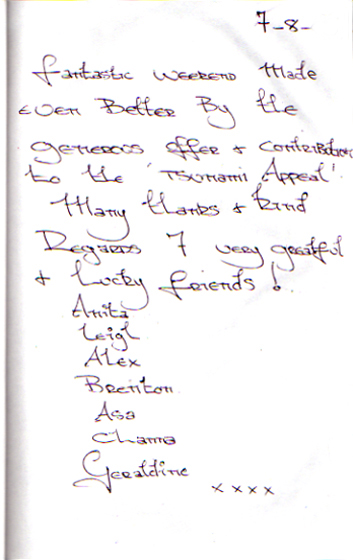 7-8-
fantastic weekend Made
even Better By the
generous offer & contribution
to the 'Tsunami Appeal'.
Many thanks & kind
Regards 7 very greatful
& lucky friends!
Anita
Leigh
Alex
Brenton
Asa
Geraldine
x x x x